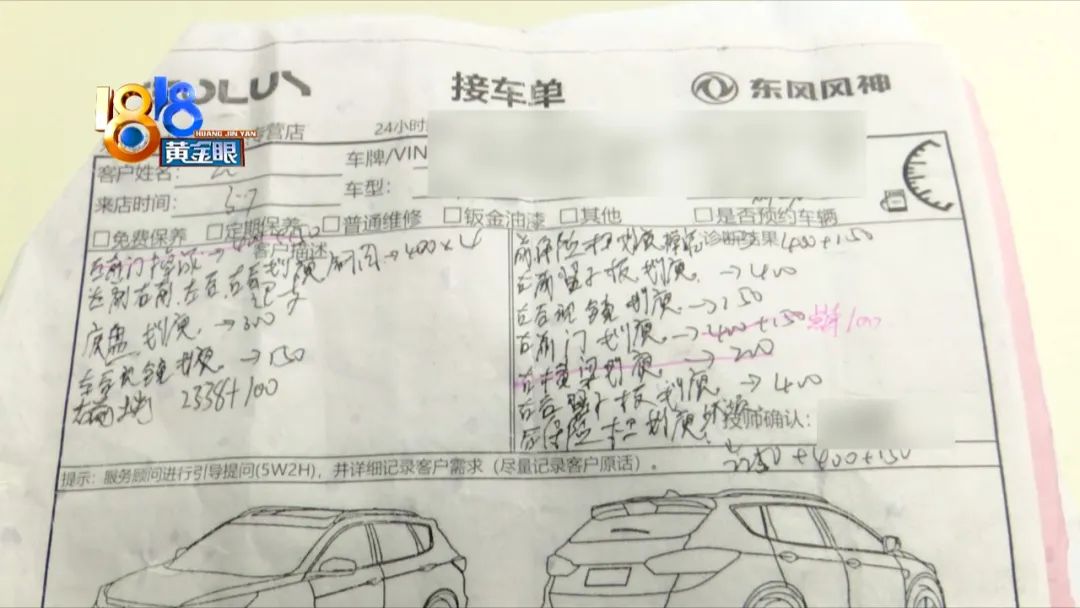 1818
HUANG JIN YAN
黄金眼
OLUS
接车单
东风风神
营店
24小时
客户姓名:
车牌/VIN
来店时间: 5.7
车型:
□免费保养 □定期保养 □普通维修 □钣金油漆 □其他 □是否预约车辆
客户描述
诊断结果
左前右前.左后.右后划痕 →400×4
底盘划痕. →300
左后视镜划痕. →150
2338+100
前保险杠划痕 400+150
右前叶子板划痕. →400
右后视镜划痕 →150
右前门划痕. →400+150 100
划痕. →200
右后叶子板划痕. →400
后保险杠划痕
+400+150
技师确认:
提示:服务顾问进行引导提问(5W2H),并详细记录客户需求(尽量记录客户原话)。